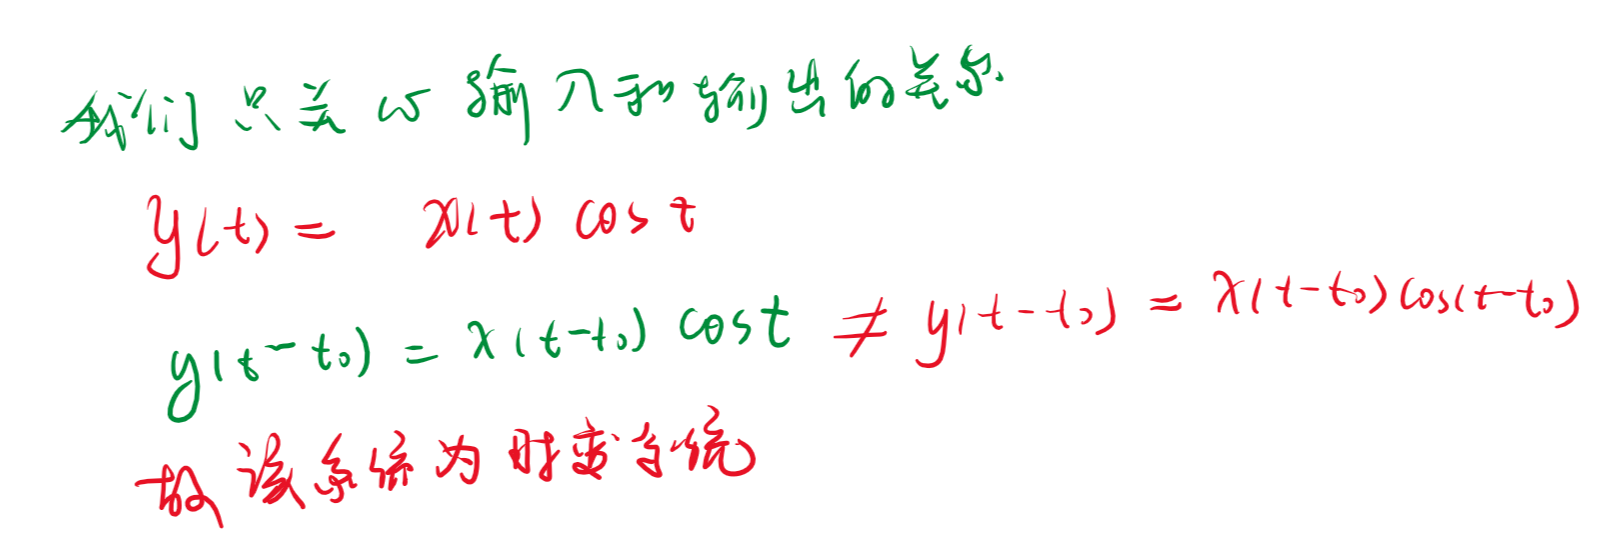 我们只关心输入和输出的关系.
y(t) = x(t) cost
y(t-t₀) = x(t-t₀) cost ≠ y(t-t₀) = x(t-t₀)cos(t-t₀)
故该系统为时变系统